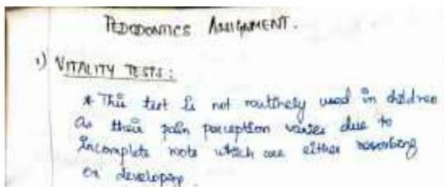 PEDODONTICS ASSIGNMENT.
1) VITALITY TESTS:
* This test is not routinely used in children
as their pain perception varies due to
incomplete roots which are either resorbing
or developing.